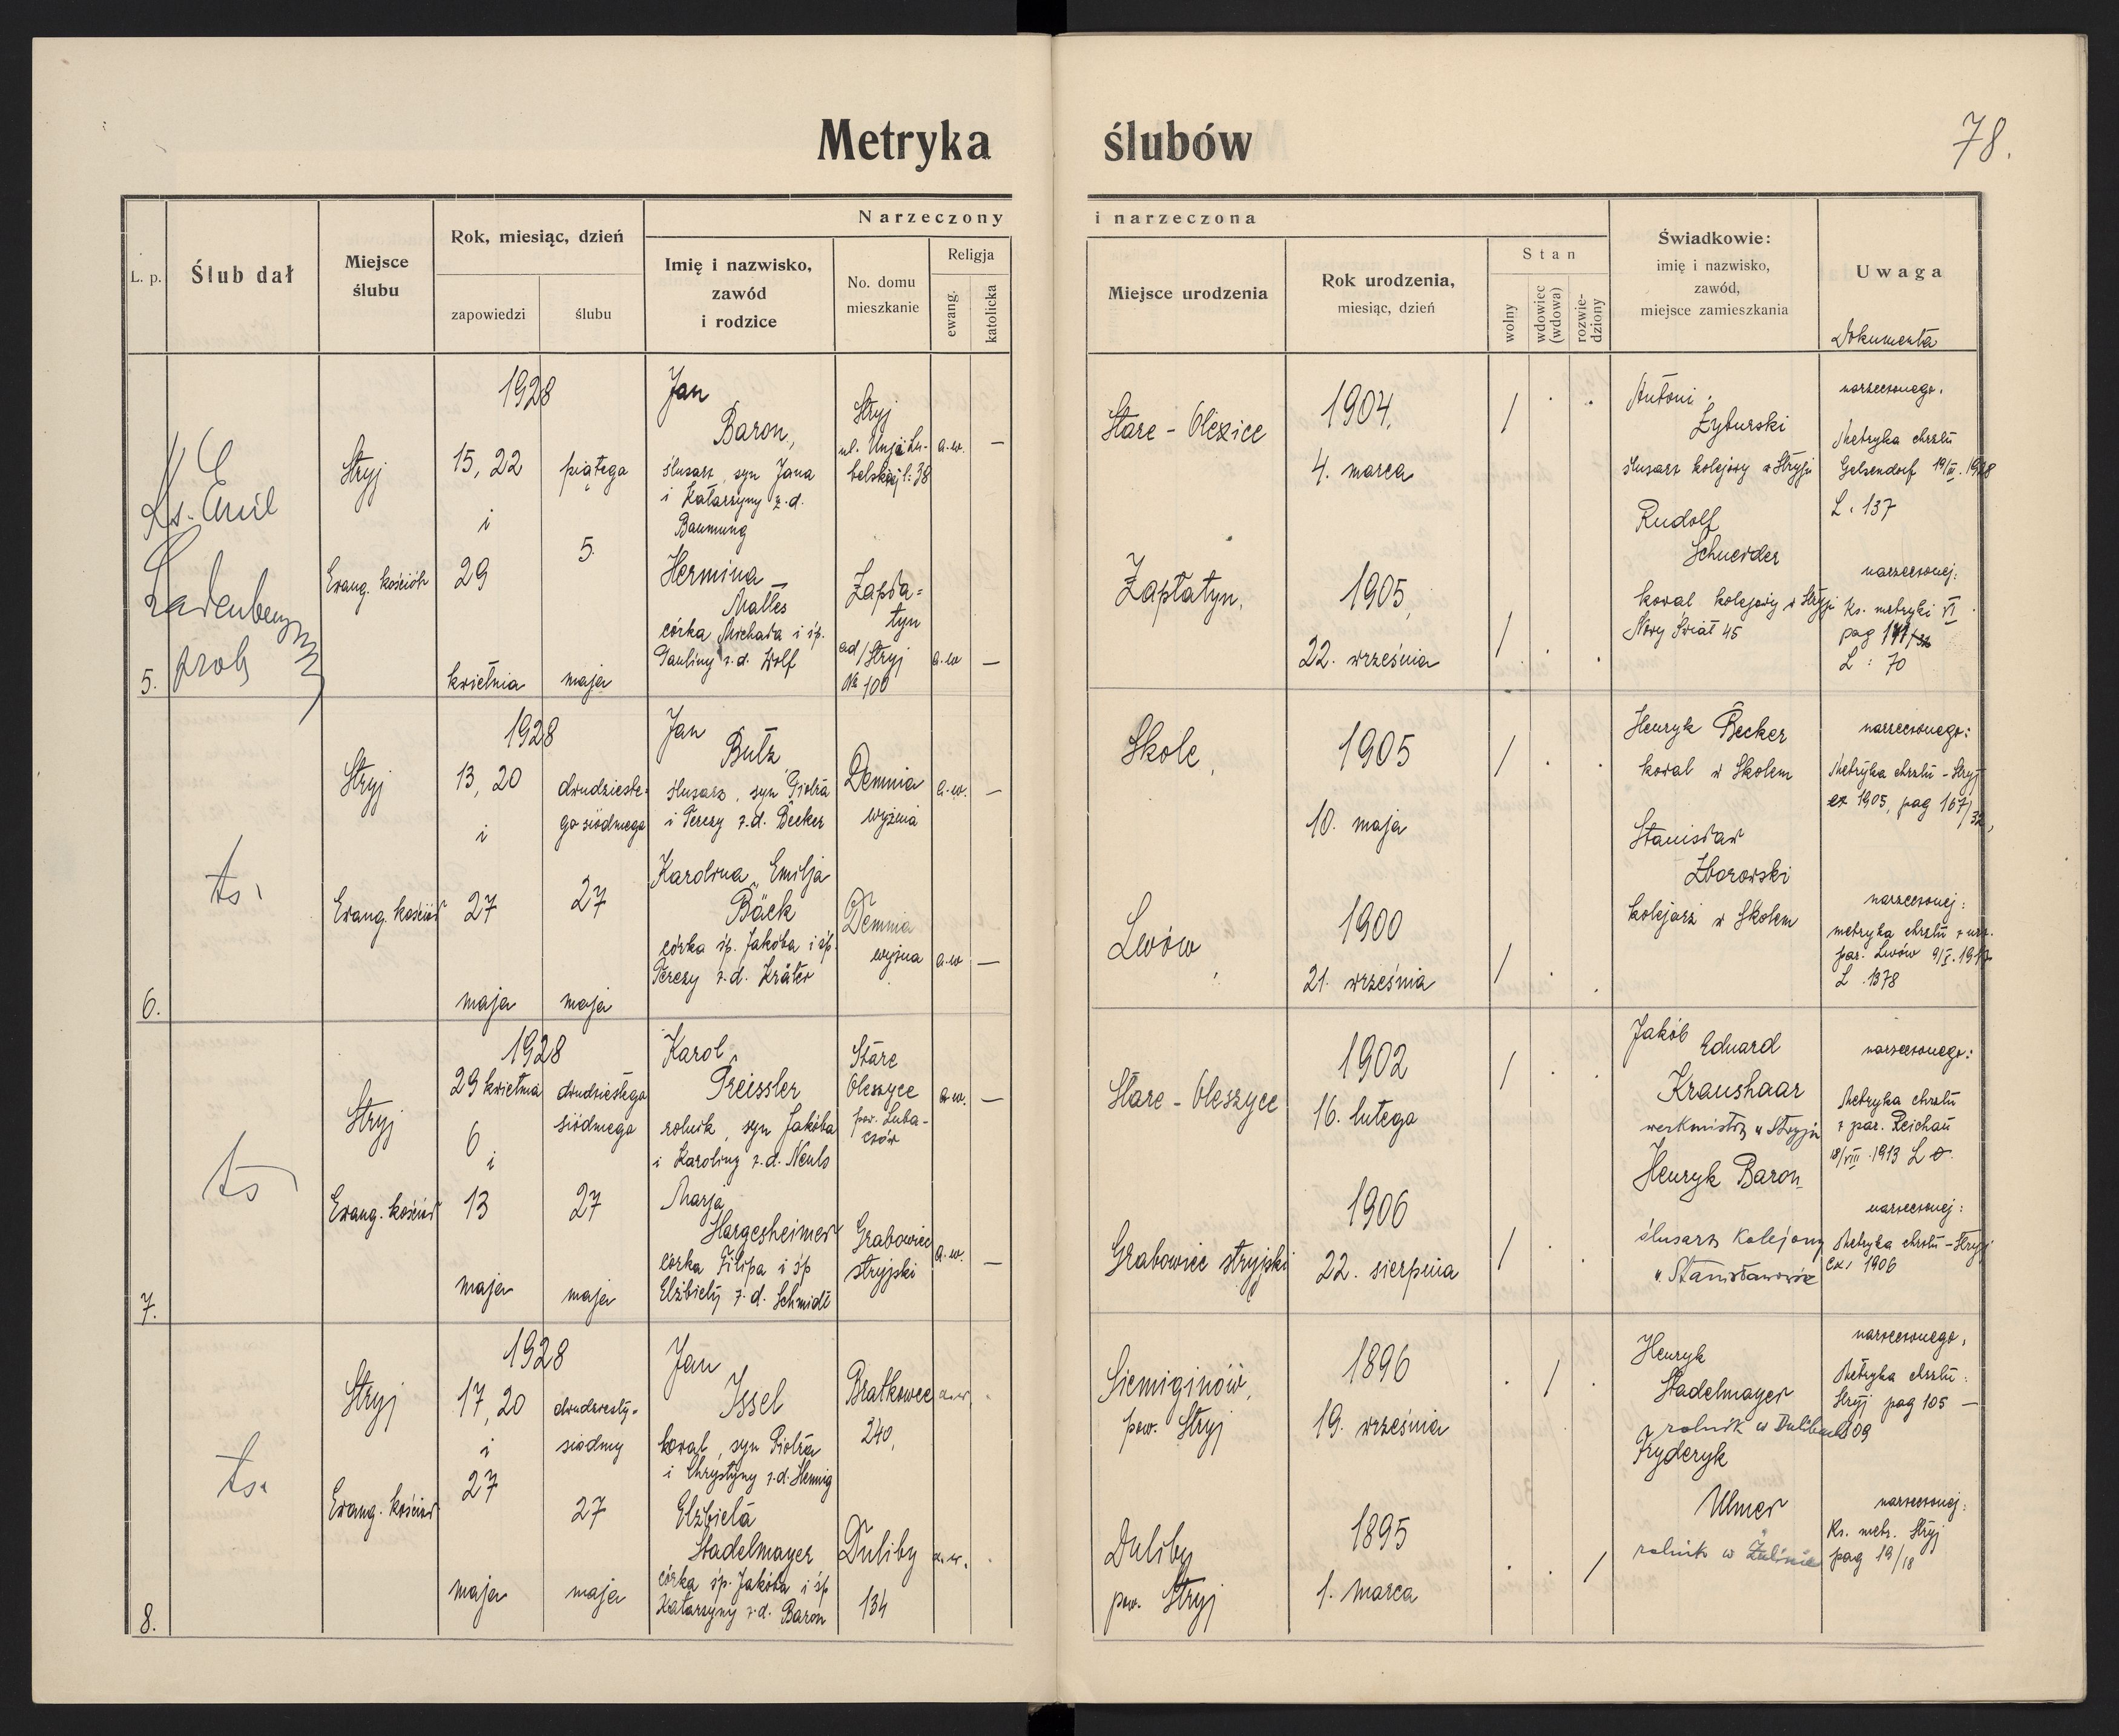 Metryka ślubów
78.
L. p.
Ślub dał
Miejsce
ślubu
Rok, miesiąc, dzień
zapowiedzi
ślubu
Narzeczony
Imię i nazwisko,
zawód
i rodzice
No. domu
mieszkanie
Religja
ewang.
katolicka
i narzeczona
Miejsce urodzenia
Rok urodzenia,
miesiąc, dzień
Stan
wolny
wdowiec
(wdowa)
rozwie-
dziony
Świadkowie:
imię i nazwisko,
zawód,
miejsce zamieszkania
Uwaga
Dokumenta
5.
Ks. Emil
Ladenberger
prob
Stryj
Ewang. kościół
1928
15, 22
i
29
kwietnia
piątego
5.
maja
Jan
Baron,
ślusarz, syn Jana
i Katarzyny z.d.
Baumung
Stryj
ul. Unji Lu-
belskiej l. 38
a.w. —
Stare - Olezice
1904,
4. marca
/ . .
Antoni
Żyburski
ślusarz kolejowy w Stryju
narzeczonego.
Metryka chrztu
Gelsendorf 19/III. 1928
L. 137
Hermina
Mattes
córka Michała i śp.
Pauliny z.d. Wolf
Zapła=
tyn
ad/Stryj
№ 100
a.w —
Zapłatyn.
1905,
22. września
/ . .
Rudolf
Schneider
kowal kolejowy w Stryju
Nowy Świat 45
narzeczonej:
Ks. metryki VI
pag
L: 70
6.
ts.
Stryj
Ewang. kościół
1928
13, 20
i
27
maja
dwudzieste-
go siódmego
27
maja
Jan
Butz
ślusarz, syn Piotra
i Terezy z.d. Becker
Demnia
wyżnia
a.w. —
Skole,
1905
10. maja
/ . .
Henryk Becker
kowal w Skolem
narzeczonego:
Metryka chrztu - Stryj
ex 1905, pag 167/32,
Karolina Emilja
Bäck
córka śp. Jakóba i śp.
Terezy z.d. Kräter
Demnia
wyżna
a.w —
Lwów,
1900
21. września
/ . .
Stanisław
Zborowski
kolejarz w Skolem
narzeczonej:
metryka chrztu z urz.
par. Lwów
L. 1378
7.
ts
Stryj
Ewang. kościół
1928
29 kwietnia
6
i
13
maja
dwudziestego
siódmego
27
maja
Karol
Preissler
rolnik, syn Jakóba
i Karoliny z.d. Neuls
Stare
Oleszyce
pow. Luba-
czów
a.w. —
Stare - Oleszyce
1902
16. lutego
/ . .
Jakób Eduard
Kraushaar
werkmistrz w Stryju
narzeczonego:
Metryka chrztu
z par. Reichau
18/VIII. 1913 L
Marja
Hargesheimer
córka Filipa i śp
Elżbiety z.d. Schmidt
Grabowiec
stryjski
a.w. —
Grabowiec stryjski
1906
22. sierpnia
/ . .
Henryk Baron
ślusarz kolejowy
w Stanisławowie
narzeczonej:
Metryka chrztu - Stryj
ex. 1906
8.
ts.
Stryj
Ewang. kościół
1928
17, 20
i
27
maja
dwudziesty-
siódmy
27
maja
Jan
Issel
kowal, syn Piotra
i Chrystyny z.d. Hennig
Bratkowce
240,
a.w.
Siemiginów,
pow. Stryj
1896
19. września
. / .
Henryk
Stadelmayer
rolnik w Dulibach
narzeczonego,
Metryka chrztu:
Stryj pag 105 —
Elżbieta
Stadelmayer
córka śp. Jakóba i śp
Katarzyny z.d. Baron
Duliby
134
a.w.
Duliby
pow. Stryj
1895
1. marca
. . /
Fryderyk
Ulmer
rolnik w
narzeczonej:
Ks. metr. Stryj
pag 19/18